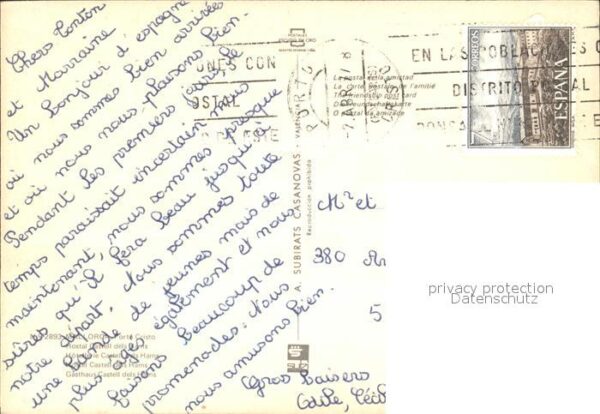 Chers Tonton
et Marraine
Un bonjour d'espagne
où nous sommes bien arrivées
et où nous nous plaisons bien.
Pendant les premiers jours, le
temps paraissait incertain mais
maintenant, nous sommes presque
sûres qu'il fera beau jusqu'à
notre départ. Nous sommes toute
une bande de jeunes mais de
plus âgés également et nous
faisons beaucoup de
promenades. Nous
nous amusons bien.
Gros baisers
Odile, Céci
Mr et
380
5
A. SUBIRATS CASANOVAS - VALENCIA
Reproducción prohibida
La postal de la amistad
La carte postale de l'amitié
The friendship post card
Die Freundschaftskarte
O postal da amizade
ONES CON
OSTAL
EN LAS POBLACIONES C
DISTRITO POSTAL
ABR
CORREOS
ESPAÑA
Porto Cristo
Hostal Castell dels Hams
Castell dels Hams
Castell dels Hams
Gasthaus Castell dels Hams
privacy protection
Datenschutz